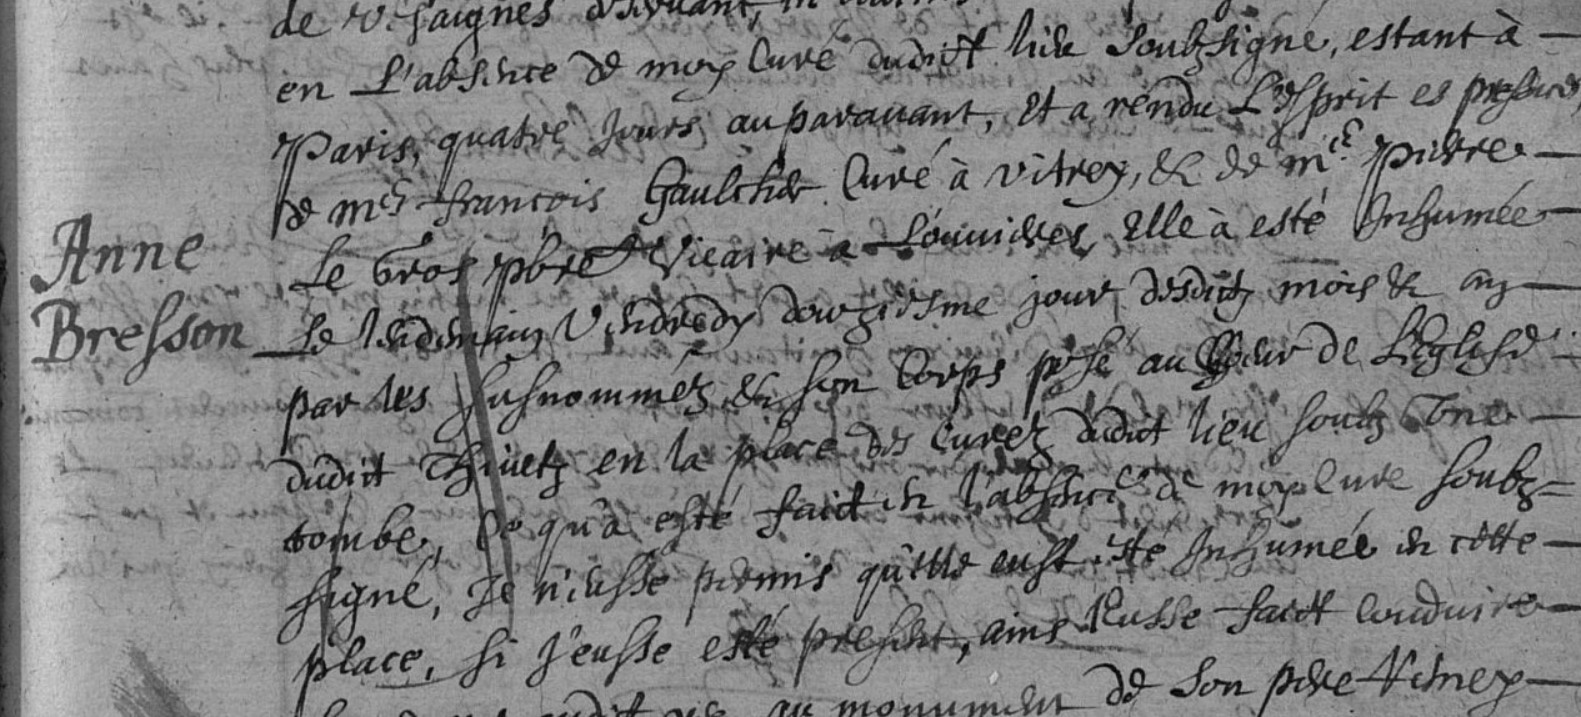 de
en L'absence de moy Curé dudict lieu Soubsigné, estant à
Paris, quatre Jours auparavant, Et a rendu L'Esprit es presences
de mre francois Gaulthier Curé à vitrey, & de mre Pierre
Le Gros pbre Vicaire a Louuieres, Elle à esté Inhumée
Anne
Bresson
Le lendemain Vendredy douziesme jour desdictz mois & an
par les susnommez & son Corps posé au Choeur de L'Eglise
dudict Thiuetz en la place des Curez dudict lieu soubz Une
tombe, Ce qu'a esté faict en l'absence de moy Curé soubz=
signé, Je n'eusse permis qu'elle eust esté Inhumée en cette
place, si J'eusse esté present, ains l'eusse faict Conduire
au monument de Son pere